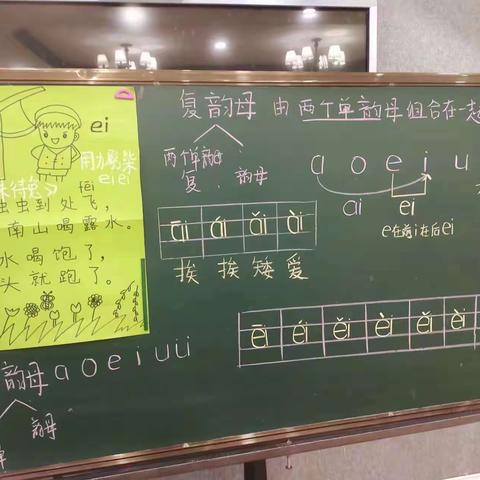 ei
用力
ei ei
虫虫到处飞，
南山喝露水。
水喝饱了，
头就跑了。
复韵母 由两个单韵母组合在一起
两个单韵母
复 韵母
a o e i u
ai ei
e在前i在后ei
āi ái ǎi ài
挨 挨 矮 爱
ēi éi ěi èi ěi èi
韵母 a o e i u ü
韵母